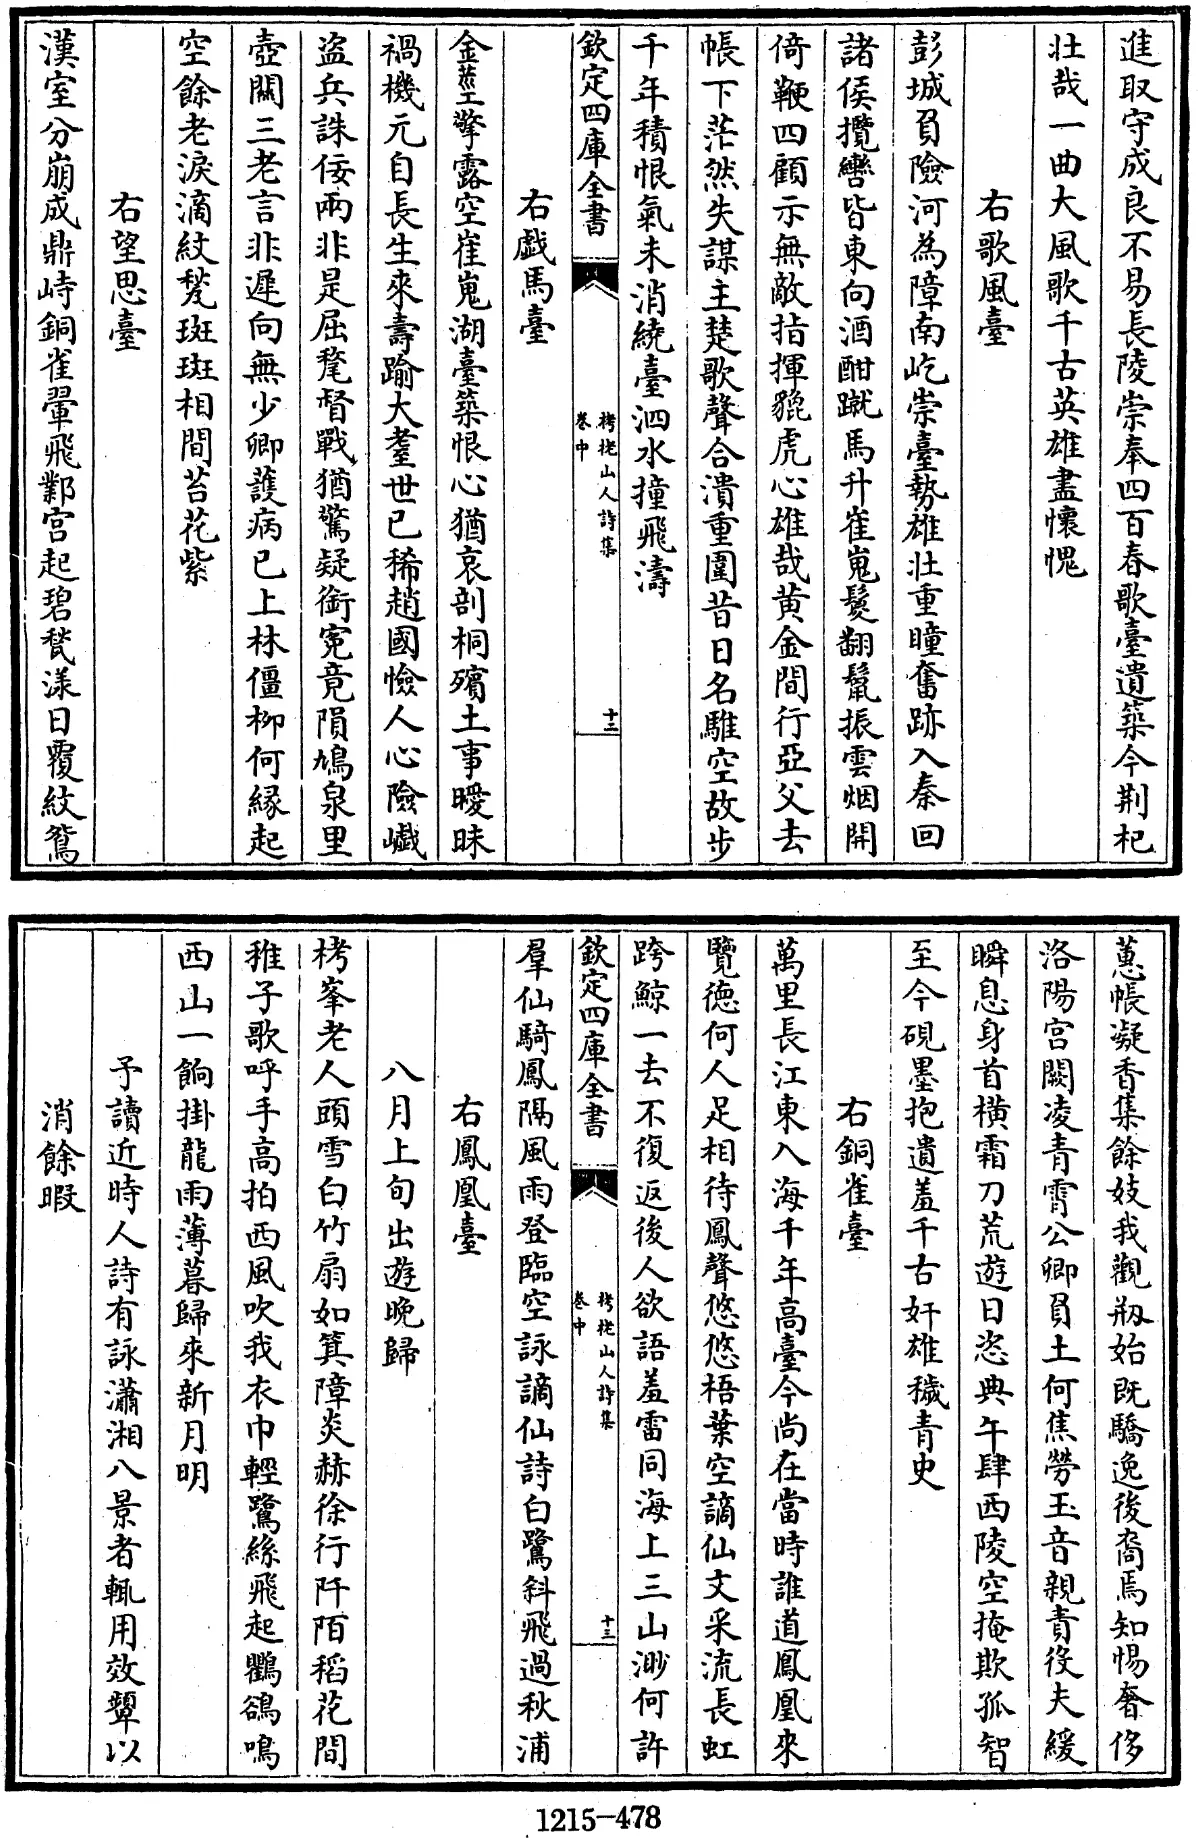 進取守成良不易長陵崇奉四百春歌臺遺築今荆杞
壯哉一曲大風歌千古英雄盡懷愧
右歌風臺
彭城負險河為障南屹崇臺勢雄壯重瞳奮跡入秦回
諸侯攬轡皆東向酒酣蹴馬升崔嵬鬉翻鬛振雲烟開
倚鞭四顧示無敵指揮貔虎心雄哉黄金間行亞父去
帳下茫然失謀主楚歌聲合潰重圍昔日名騅空故步
千年積恨氣未消繞臺泗水撞飛濤
欽定四庫全書
栲栳山人詩集
卷中
十二
右戯馬臺
金莖擎露空崔嵬湖臺築恨心猶哀剖桐殯土事曖昧
禍機元自長生來壽踰大耋世已稀趙國憸人心險巇
盗兵誅佞兩非是屈氂督戰猶驚疑銜寃竟隕鳩泉里
壺關三老言非遲向無少卿䕶病已上林僵柳何縁起
空餘老淚滴紋甃斑斑相間苔花紫
右望思臺
漢室分崩成鼎峙銅雀翬飛鄴宫起碧甃漾日覆紋鴛
蕙帳凝香集餘妓我觀剏始既驕逸後裔焉知惕奢侈
洛陽宫闕凌青霄公卿負土何焦勞玉音親責役夫緩
瞬息身首横霜刀荒遊日恣典午肆西陵空掩欺孤智
至今硯墨抱遺羞千古奸雄穢青史
右銅雀臺
萬里長江東入海千年高臺今尚在當時誰道鳳凰來
覽徳何人足相待鳳聲悠悠梧葉空謫仙文采流長虹
跨鯨一去不復返後人欲語羞雷同海上三山渺何許
欽定四庫全書
栲栳山人詩集
卷中
十三
羣仙騎鳳隔風雨登臨空詠謫仙詩白鷺斜飛過秋浦
右鳳凰臺
八月上旬出遊晚歸
栲峯老人頭雪白竹扇如箕障炎赫徐行阡陌稻花間
稚子歌呼手高拍西風吹我衣巾輕鷺絲飛起鸜鵒鳴
西山一餉掛龍雨薄暮歸來新月明
予讀近時人詩有詠瀟湘八景者輒用效顰以
消餘暇
1215-478